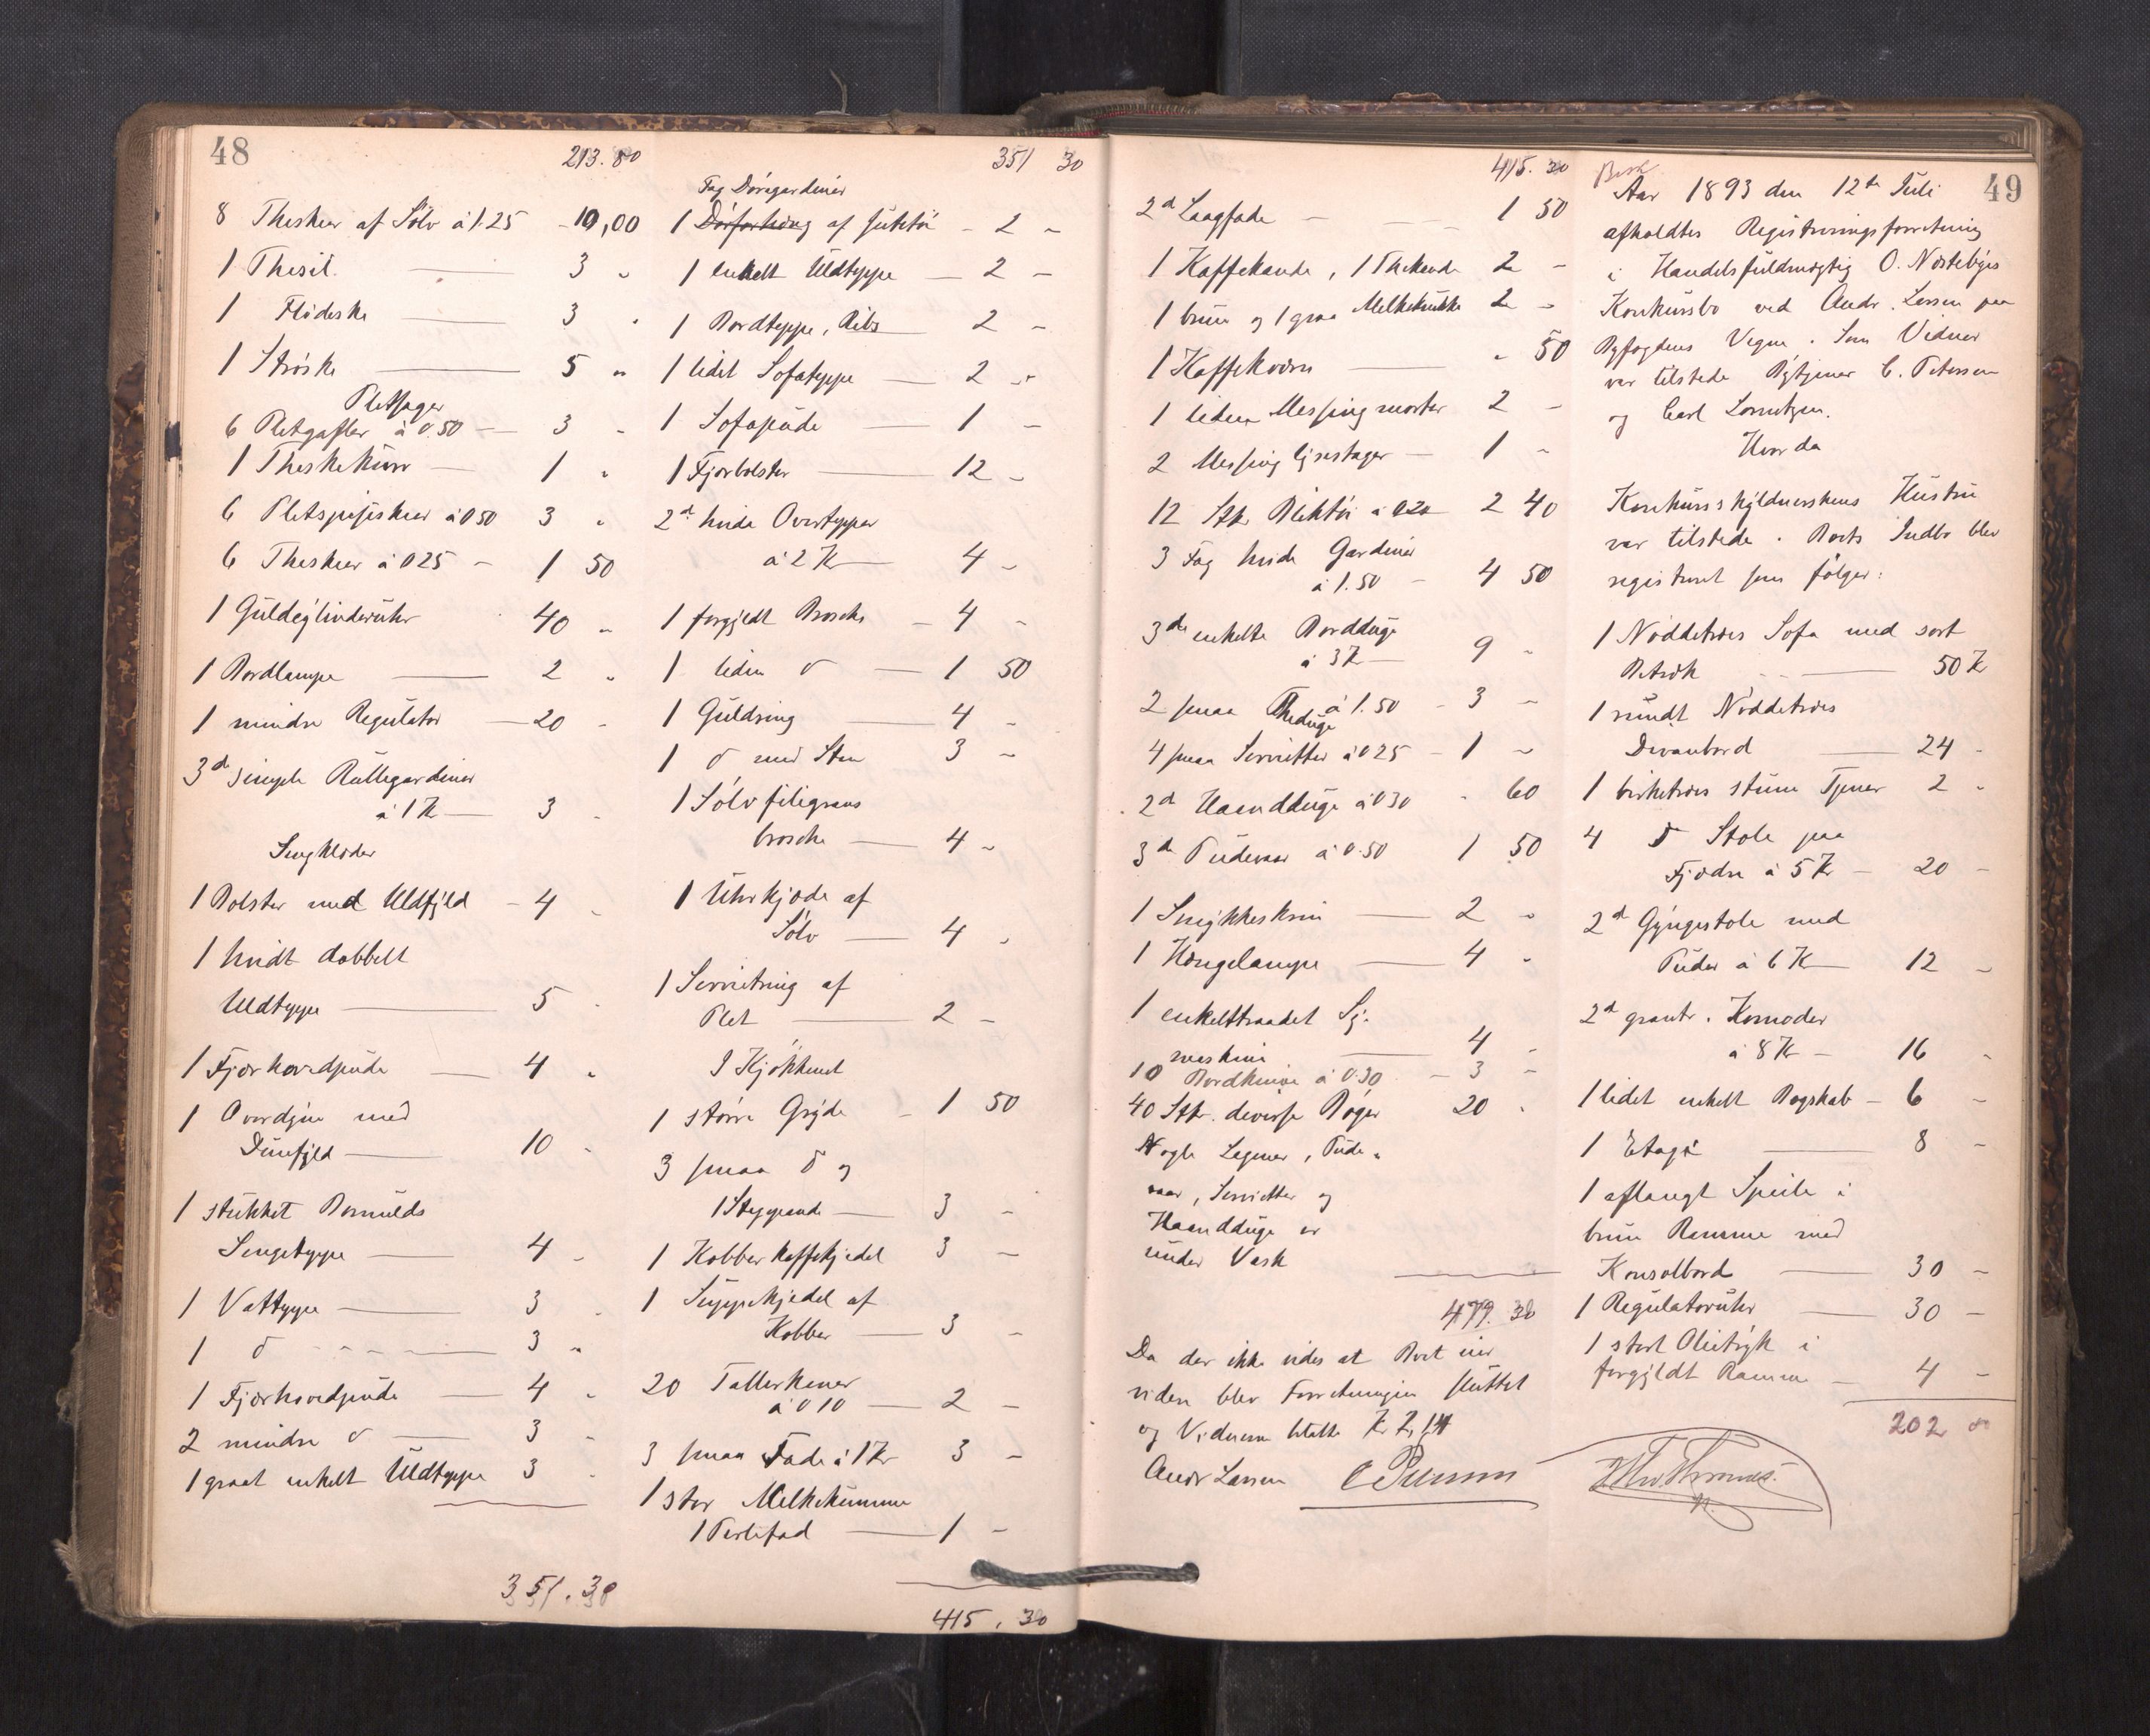 48
213.80
8 Theskeer af Sölv à 1.25 - 10,00
1 Thesil 3 "
1 Flödeske 3 "
1 Ströske 5 "
Pletsager
6 Pletgafler à 0.50 - 3 "
1 Theskekurv 1 "
6 Pletspiseskeer à 0 50 3 "
6 Theskeer à 0 25 - 1 50
1 Guldcylinderuhr 40 "
1 Bordlampe 2 "
1 mindre Regulator 20 -
3 d simple Rullegardiner
à 1 Kr 3 -
Sengklæder
1 Bolster med Uldfyld - 4 -
1 hvidt dobbelt
Uldteppe 5 -
1 Fjærhovedpude 4 "
1 Overdyne med
Dunfyld 10 -
1 stukket Bomulds
Sengeteppe 4 -
1 Vatteppe 3 -
1 d 3 "
1 Fjærhovedpude 4 "
2 mindre d 3 -
1 graat enkelt Uldteppe 3 -
351.30
351 30
Fag Dörgardiner
1 af Jutetöi - 2 -
1 enkelt Uldteppe - 2 -
1 Bordteppe, Ribs 2 -
1 lidet Sofateppe - 2 -
1 Sofapude 1 -
1 Fjærbolster 12 -
2 d hvide Overtepper
à 2 Kr 4 -
1 forgyldt Brosche - 4 -
1 liden d 1 50
1 Guldring 4 -
1 d med Sten 3 -
1 Sölvfiligrans
brosche 4 -
1 Uhrkjæde af
Sölv 4 -
1 Servietring af
Plet 2 -
I Kjökkenet
1 större Gryde - 1 50
3 smaa d og
1 Stegpande 3 -
1 Kobberkaffekjedel 3 -
1 Suppekjedel af
Kobber 3 -
20 Tallerkener
à 0 10 2 -
3 smaa Fade à 1 Kr 3 -
1 stor Melkekumme
1 Terlefad 1 -
415,30
415.30
2 d Laagfade - 1 50
1 Kaffekande, 1 Thekande 2 -
1 brun og 1 graa Melkekrukke 2 -
1 Kaffekværn " 50
1 liden Messingmorter 2 -
2 Messing lysestager 1 -
12 Stk. Bliktöi à 0 20 2 40
3 Fag hvide Gardiner
à 1.50 - 4 50
3 d enkelte Bordduge
à 3 Kr 9 -
2 smaa Theduge à 1.50 - 3 -
4 smaa Servietter à 0 25 - 1 -
2 d Haandduge à 0 30 " 60
3 d Pudevaar à 0.50 1 50
1 Smykkeskrin 2 -
1 Hængelampe 4 -
1 enkelttraadet Sy-
maskine 4 -
10 Bordknive à 0.30 - 3 -
40 Stk. diverse Böger 20 -
Nogle Lagner, Pude-
vaar, Servietter og
Haandduge er
under Vask
479.30
Da der ikke vides at Boet eier
videre blev Forretningen sluttet
og Vidnerne betalte Kr 2,14
Andr Larsen C Petersen
49
Aar 1893 den 12te Juli
afholdtes Registreringsforretning
i Handelsfuldmægtig O. Næstebyes
Konkursbo ved Andr. Larsen paa
Byfogdens Vegne. Som Vidner
var tilstede Bytjener C. Petersen
og Carl Lorentzen.
Hvor da
Konkursskyldnerens Hustru
var tilstede. Boets Indbo blev
registreret som fölger:
1 Nöddetræes Sofa med sort
Betræk 50 Kr
1 rundt Nöddetræes
Divanbord 24 -
1 birketræes stum Tjener 2 -
4 d Stole paa
Fjædre à 5 Kr - 20 -
2 d Gyngestole med
Puder à 6 Kr 12 -
2 d grantr. Komoder
à 8 Kr - 16 -
1 lidet enkelt Bogskab - 6 -
1 Etagé 8 -
1 aflangt Speile i
brun Ramme med
Konsolbord 30 -
1 Regulatoruhr 30 -
1 stort Olietryk i
forgyldt Ramme - 4 -
202